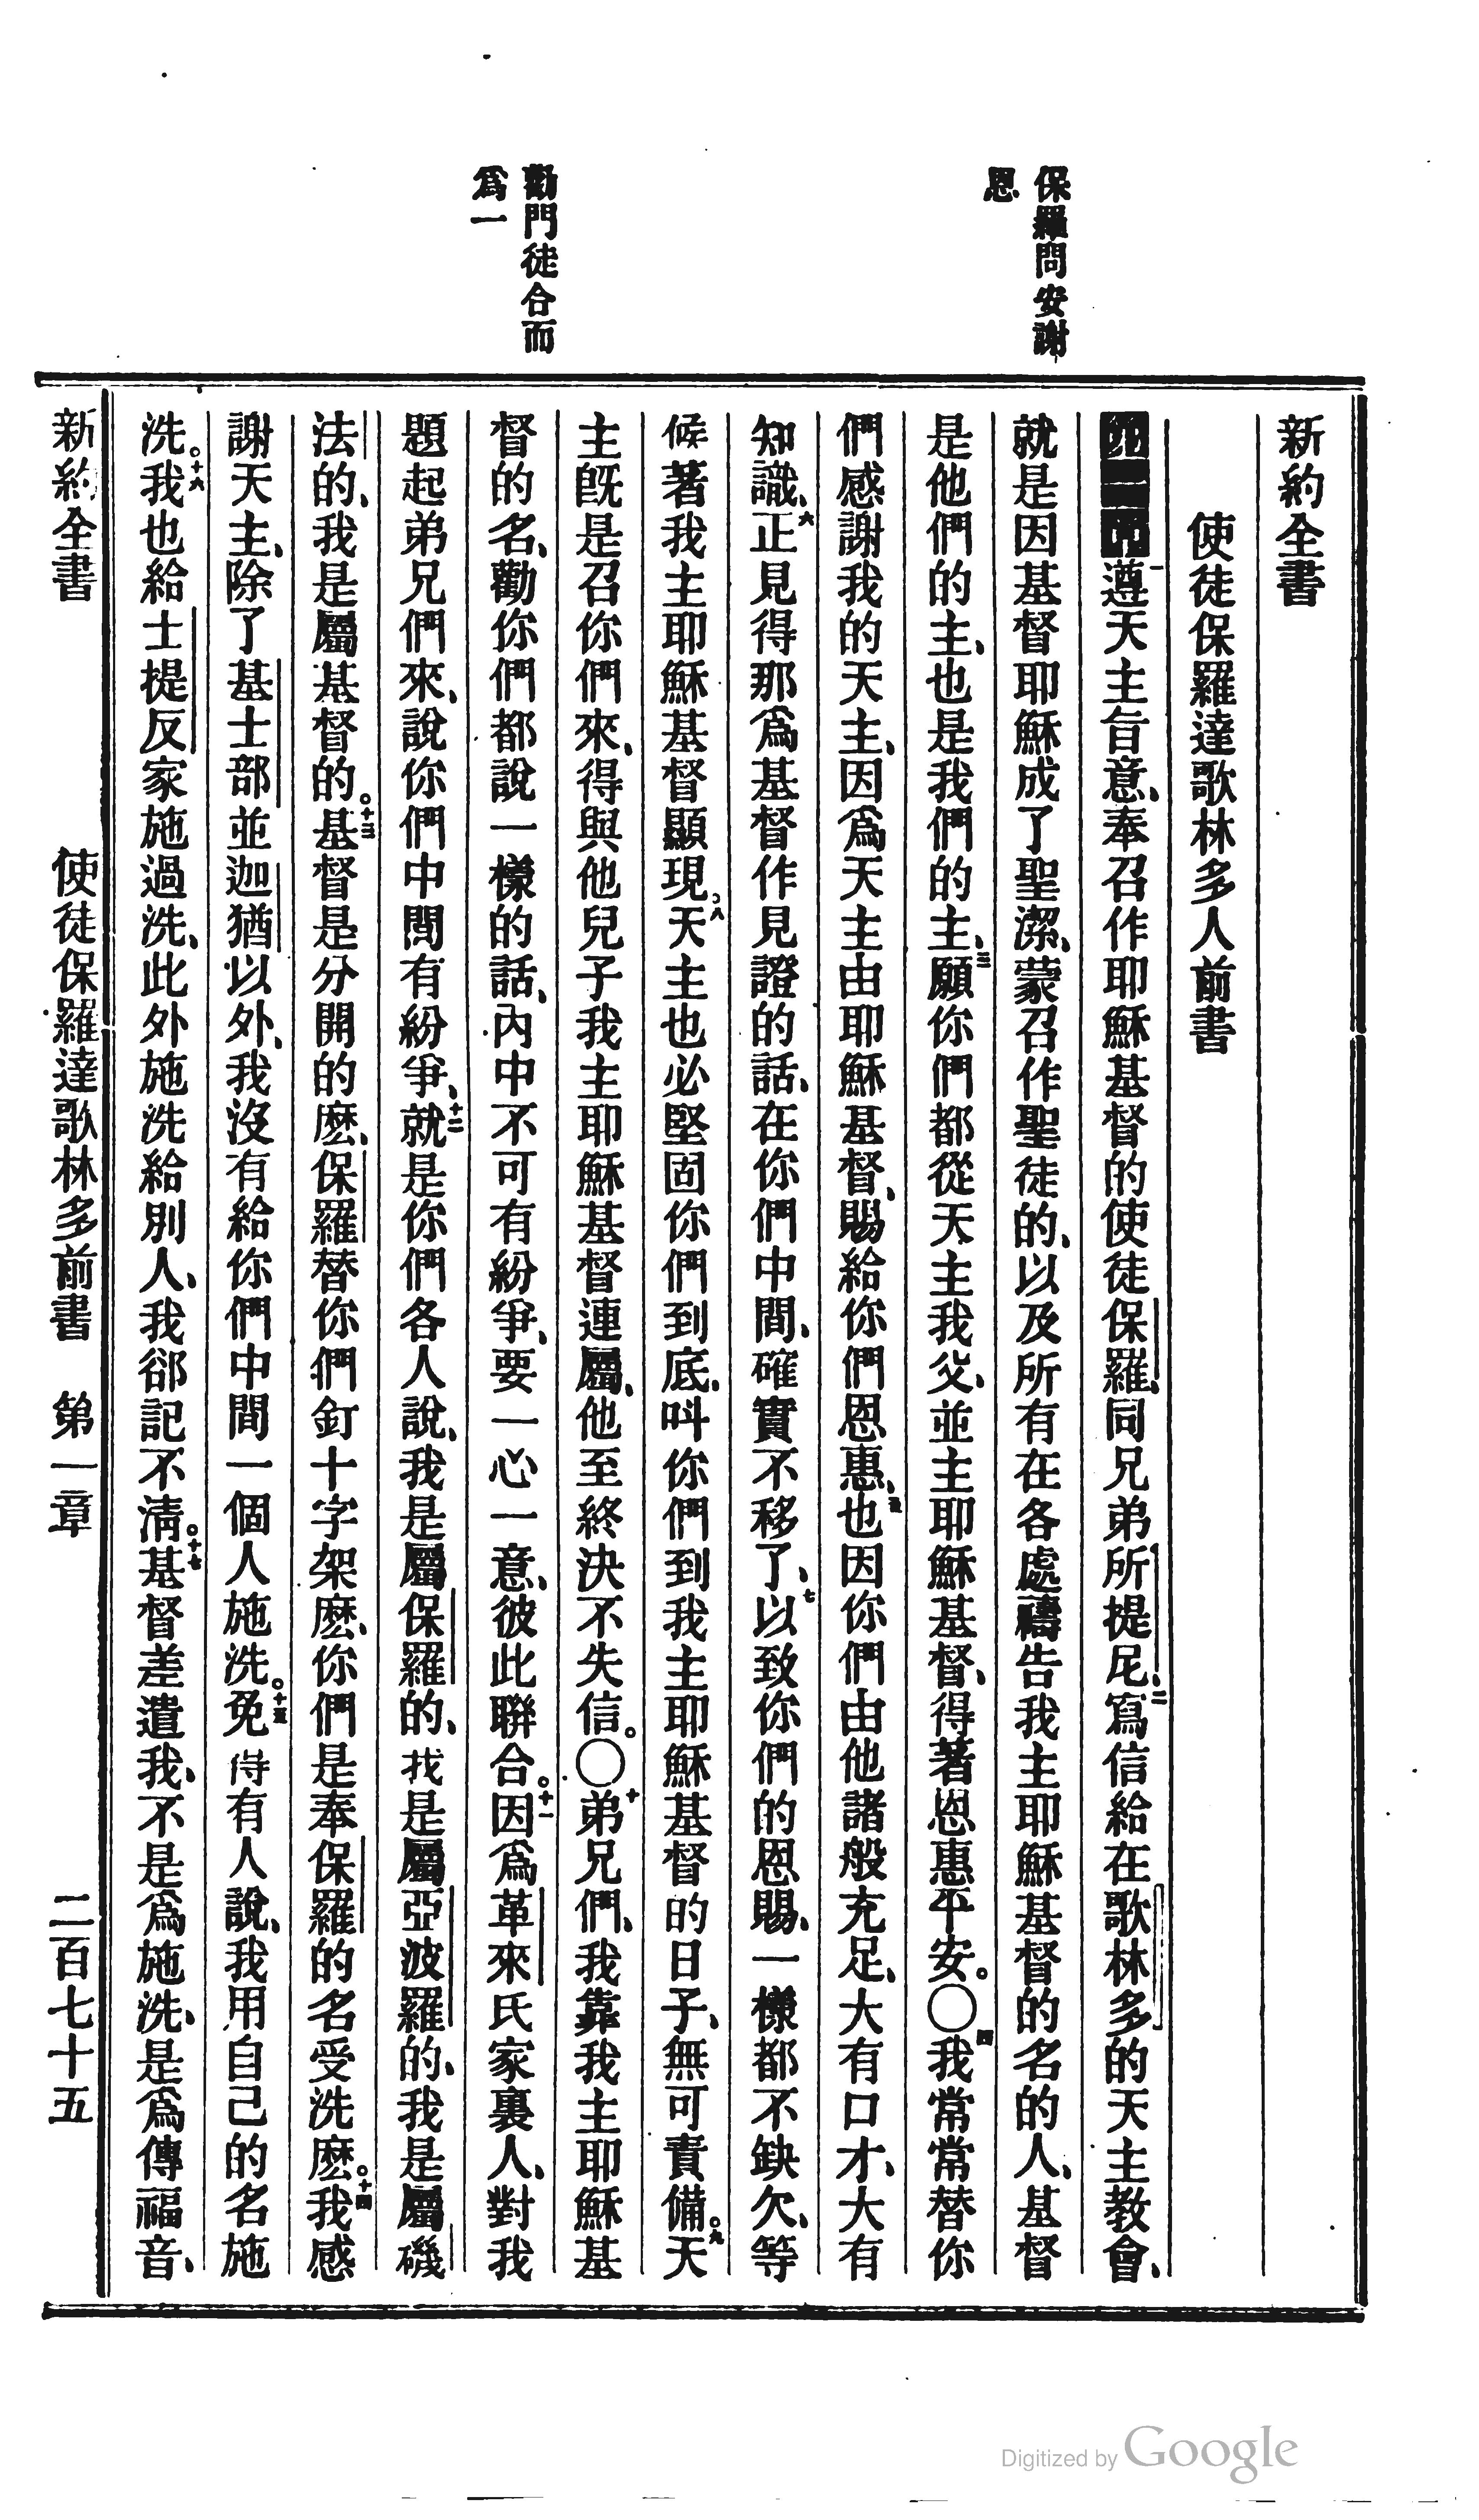 保羅問安謝
恩
勸門徒合而
爲一
新約全書
使徒保羅達歌林多人前書
一遵天主旨意、奉召作耶穌基督的使徒保羅、同兄弟所提尼、二寫信給在歌林多的天主教會、
就是因基督耶穌成了聖潔、蒙召作聖徒的、以及所有在各處禱告我主耶穌基督的名的人、基督
是他們的主、也是我們的主、三願你們都從天主我父、並主耶穌基督、得著恩惠平安。〇四我常常替你
們感謝我的天主、因爲天主由耶穌基督、賜給你們恩惠、五也因你們由他諸般充足、大有口才、大有
知識、六正見得那爲基督作見證的話、在你們中間、確實不移了、七以致你們的恩賜、一樣都不缺欠、等
候著我主耶穌基督顯現。八天主也必堅固你們到底、呌你們到我主耶穌基督的日子、無可責備。九天
主旣是召你們來、得與他兒子我主耶穌基督連屬、他至終決不失信。〇十弟兄們、我靠我主耶穌基
督的名、勸你們都說一樣的話、內中不可有紛爭、要一心一意、彼此聯合。十一因爲革來氏家裏人、對我
題起弟兄們來、說你們中間有紛爭、十二就是你們各人說、我是屬保羅的、我是屬亞波羅的、我是屬磯
法的、我是屬基督的。十三基督是分開的麽、保羅替你們釘十字架麽、你們是奉保羅的名受洗麽。十四我感
謝天主、除了基士部並迦猶以外、我沒有給你們中間一個人施洗。十五免得有人說、我用自己的名施
洗。十六我也給士提反家施過洗、此外施洗給別人、我卻記不淸。十七基督差遣我、不是爲施洗、是爲傳福音、
新約全書　使徒保羅達歌林多前書　第一章　二百七十五
Digitized by Google